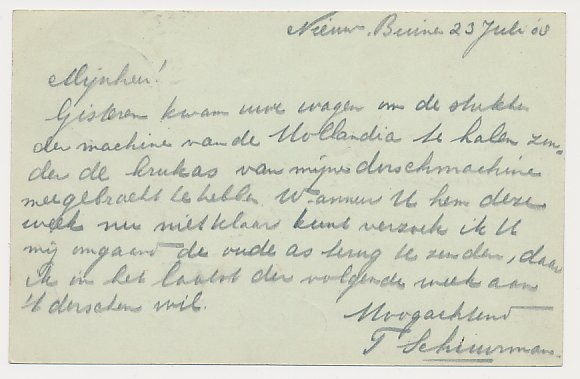 Nieuw. Buinen 23 Juli 08
Mijnheer!
Gisteren kwam uwe wagen om de stukken
der machine van de Hollandia te halen zon-
der de krukas van mijne dorschmachine
meegebracht te hebben. Wanneer U hem deze
week nu niet klaar kunt verzoek ik U
mij omgaand de oude as terug te zenden, daar
ik in het laatst der volgende week aan
't dorschen wil.
Hoogachtend
T Scheurman